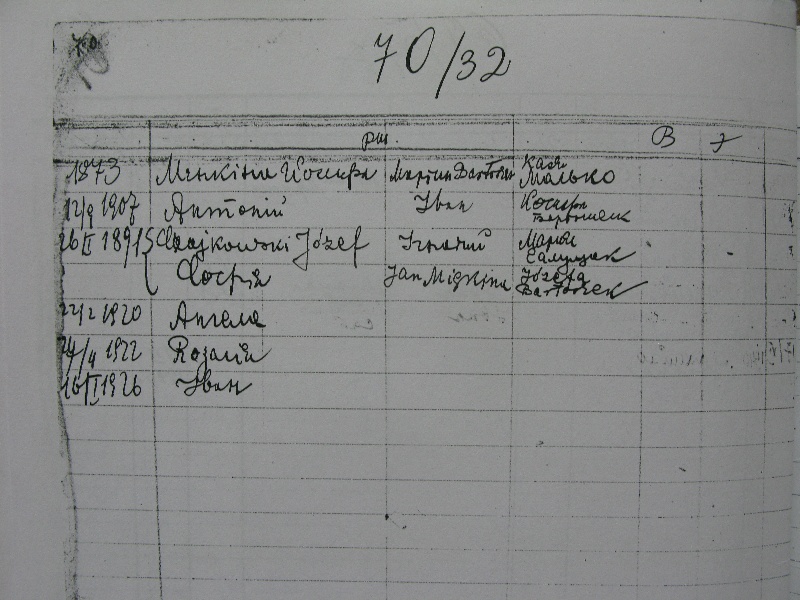 70
70/32
рим. В
1873 Мєнкіна Йосифа Мартин Бартошек Кася Малько
12/9 1907 Антоній Іван Йосифа Бартошек
26/II 1891 Czajkowski Józef Ігнатий Марія
Софія Jan Mięknina Józefa Bartoszek
22/2 1920 Ангеля
24/4 1922 Розалія
16/II 1926 Іван